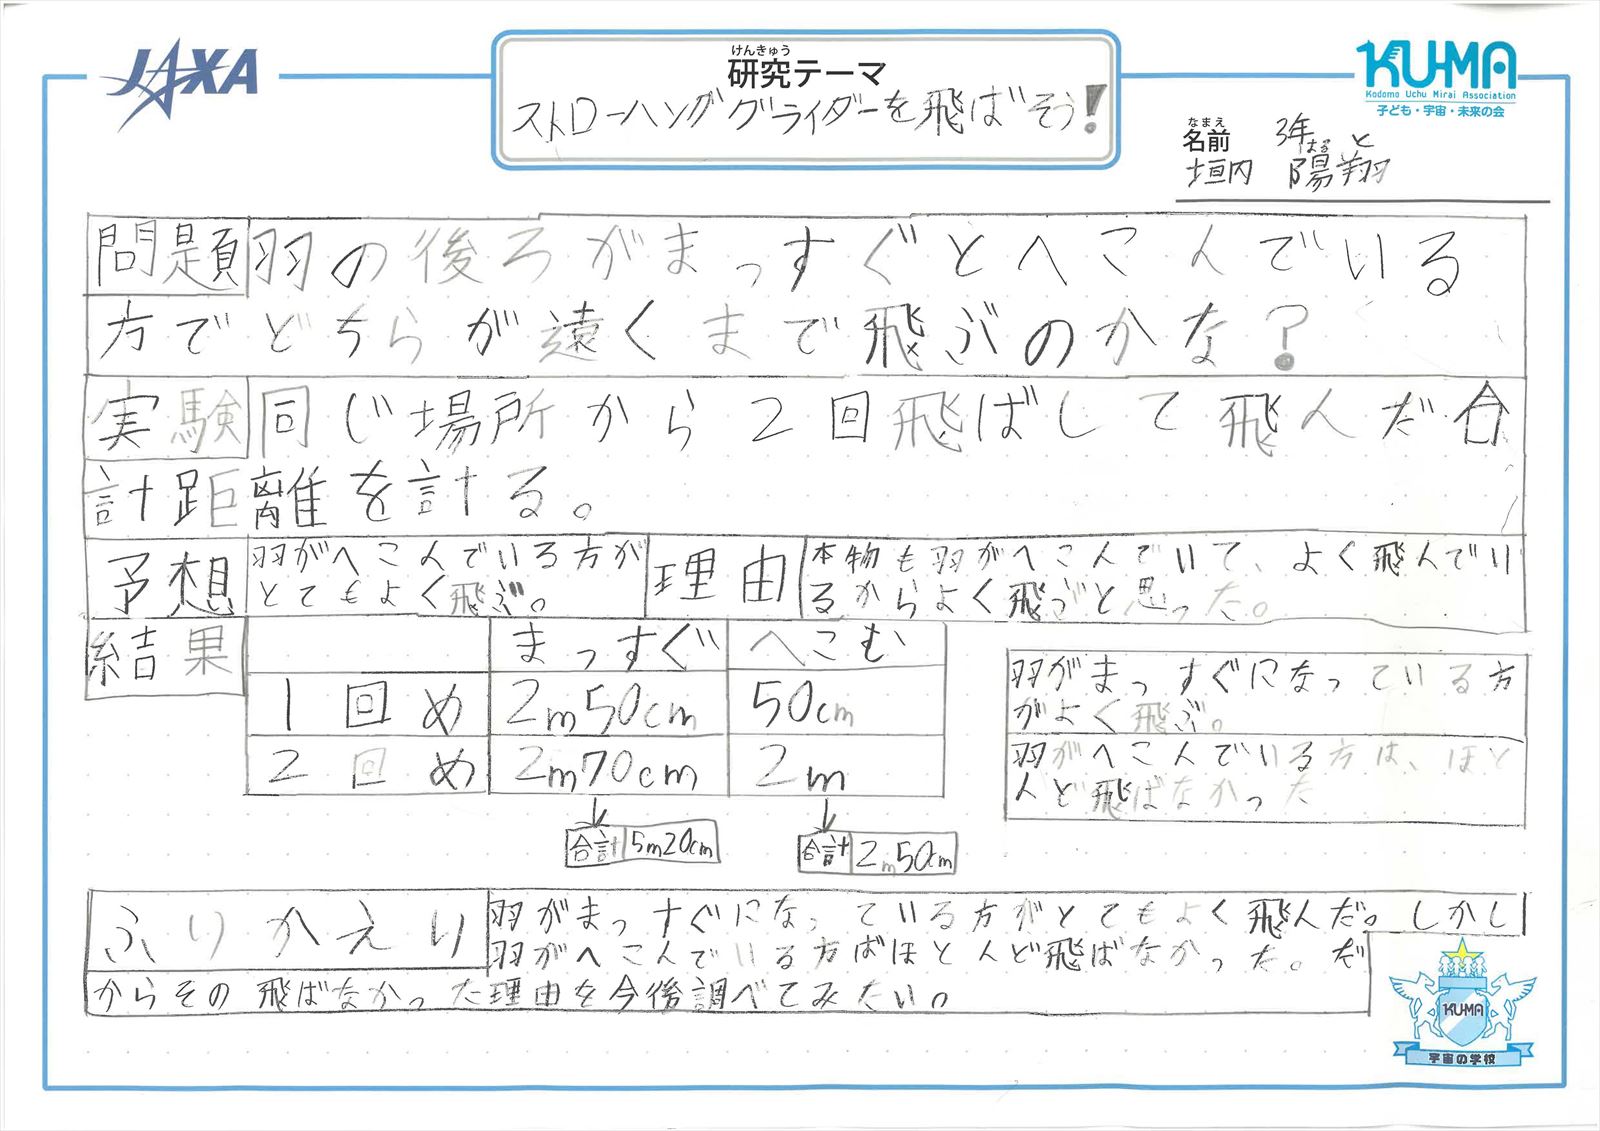 JAXA
けんきゅう
研究テーマ
ストローハンググライダーを飛ばそう!
KU-MA
Kodomo Uchu Mirai Association
子ども・宇宙・未来の会
なまえ
名前
3年
はると
垣内 陽翔
問題 羽の後ろがまっすぐとへこんでいる
方でどちらが遠くまで飛ぶのかな?
実験 同じ場所から2回飛ばして飛んだ合
計距離を計る。
予想 羽がへこんでいる方が
とてもよく飛ぶ。
理由 本物も羽がへこんでいて、よく飛んでい
るからよく飛ぶと思った。
結果
まっすぐ へこむ
1回め 2m50cm 50cm
2回め 2m70cm 2m
合計 5m20cm
合計 2m50cm
羽がまっすぐになっている方
がよく飛ぶ。
羽がへこんでいる方は、ほと
んど飛ばなかった
ふりかえり 羽がまっすぐになっている方がとてもよく飛んだ。しかし
羽がへこんでいる方ばほとんど飛ばなかった。だ
からその飛ばなかった理由を今後調べてみたい。
KUMA
宇宙の学校